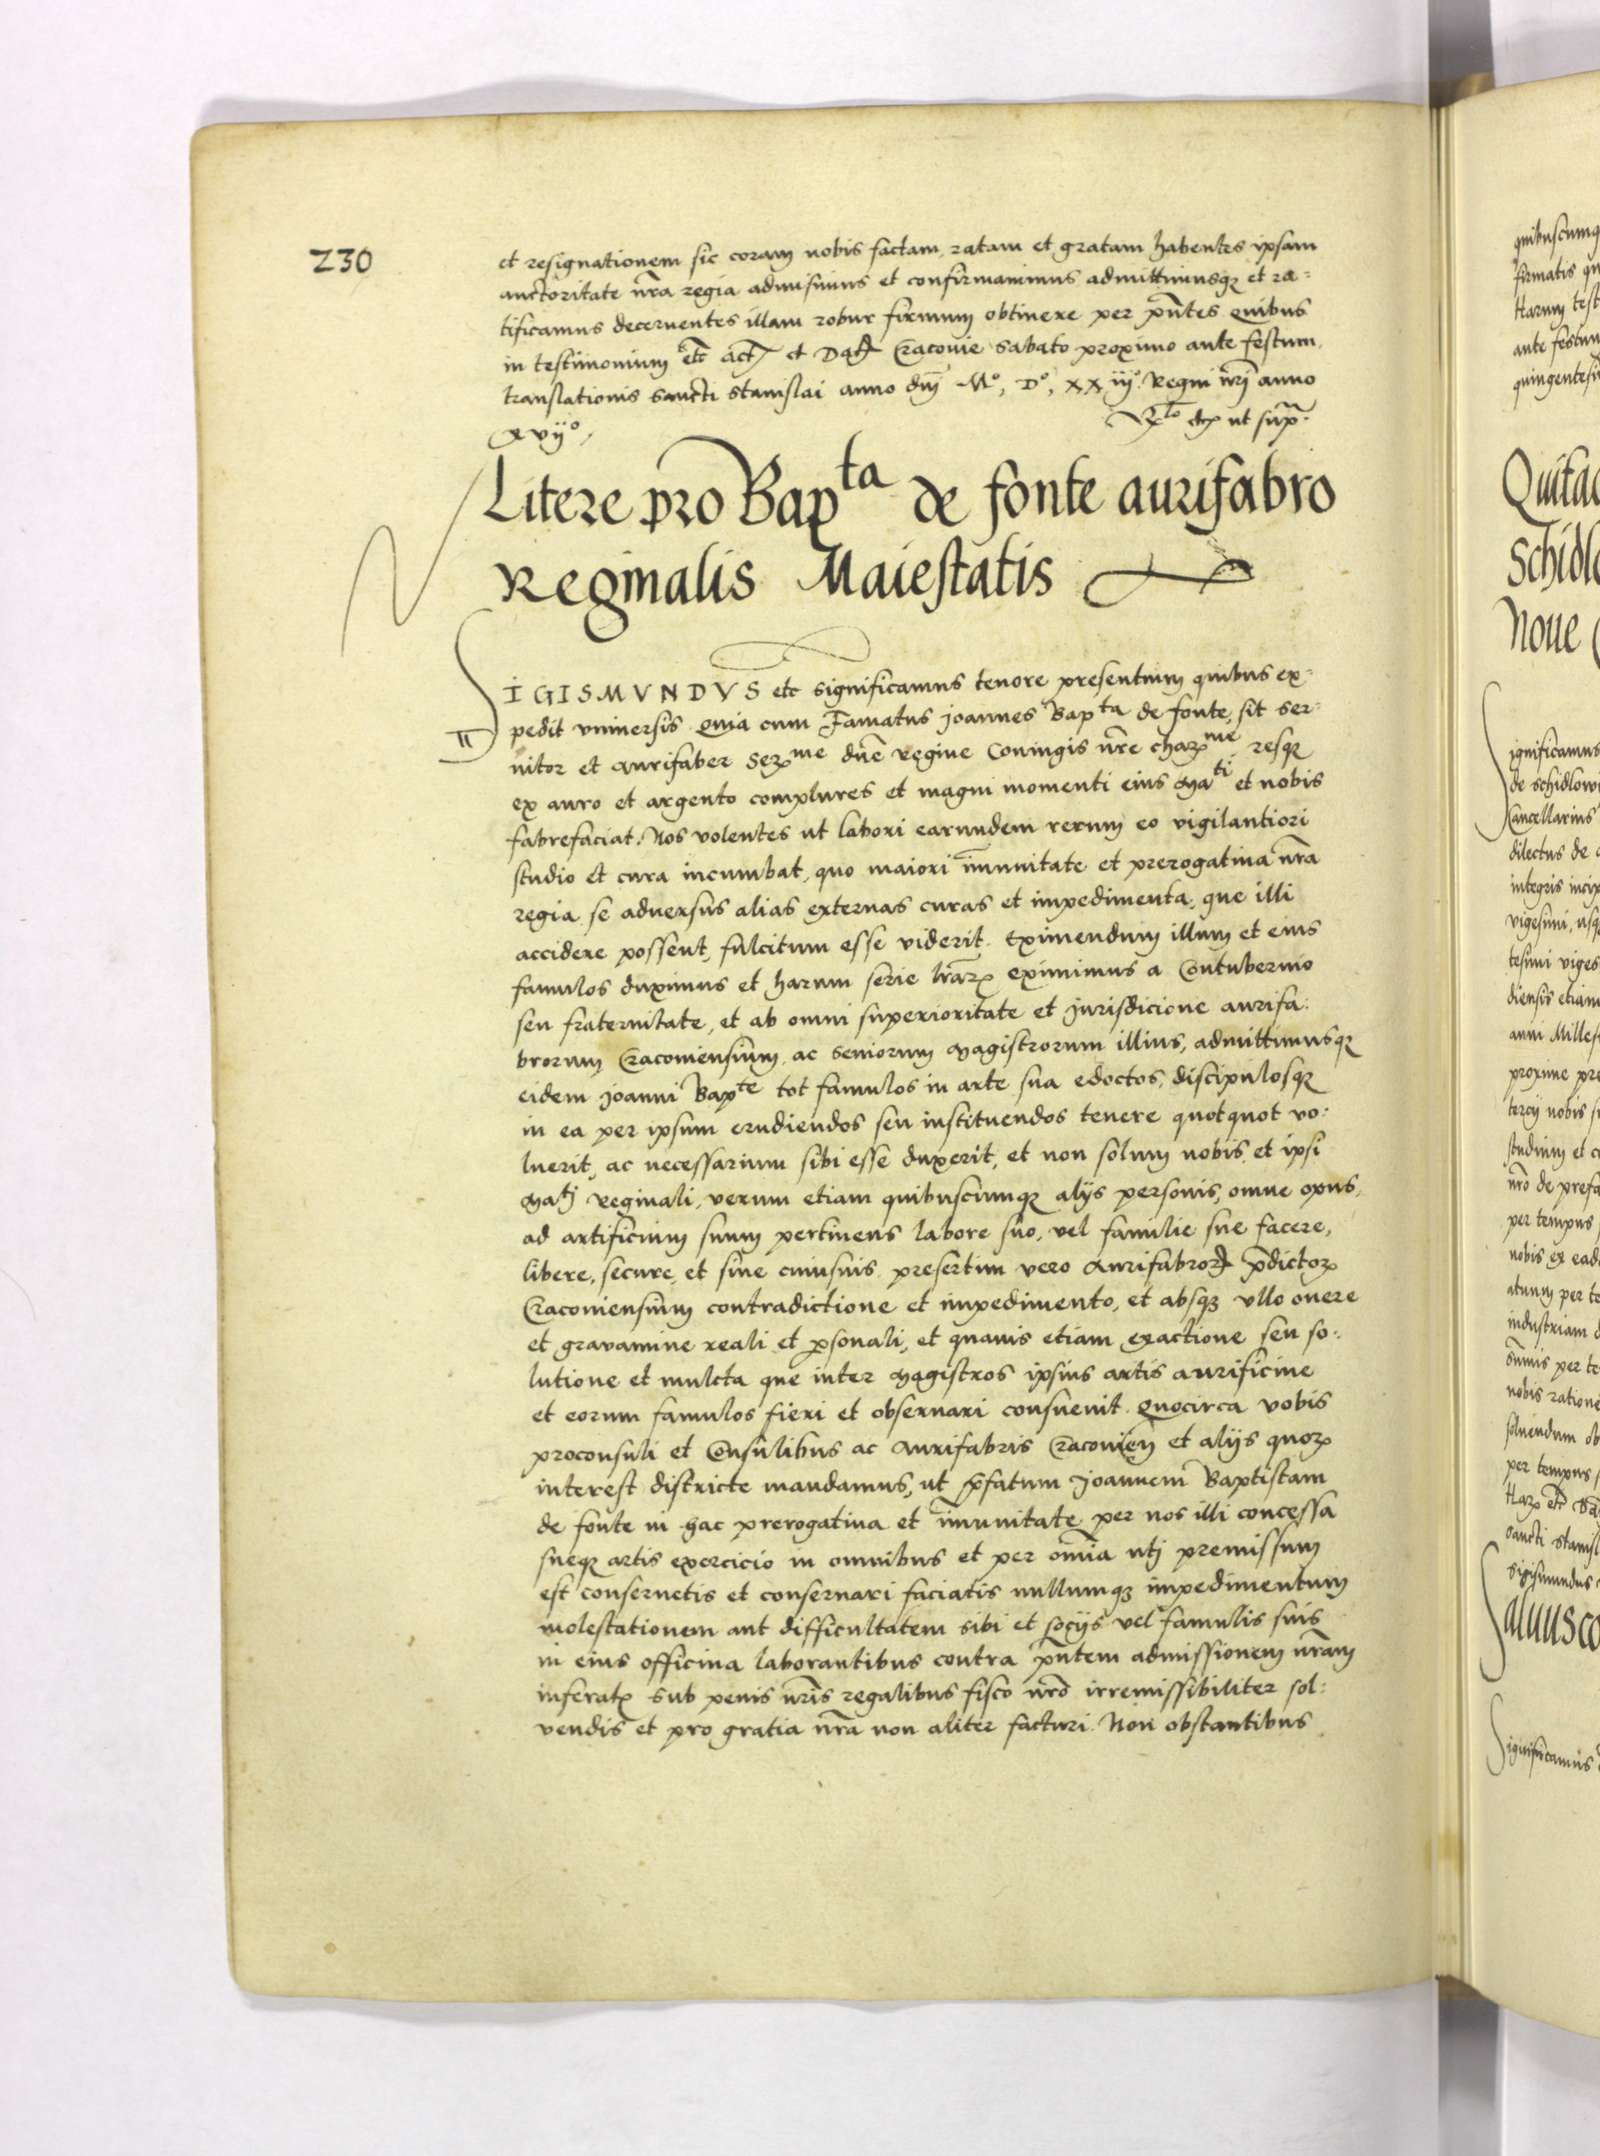 230
et resignationem sic coram nobis factam ratam et gratam habentes ipsam
auctoritate nra regia admisimus et confirmauimus admittimusqz et ra=
tificamus decernentes illam robur firmum obtinere per pntes Quibus
in testimonium etc Act et Dat Cracouie Sabato proximo ante festum
translationis Sancti Stanislai anno dni Mº, Dº, XXiijº Regni nri anno
xvijº, ut supra.
Litere pro Bapta de fonte aurifabro
Reginalis Maiestatis
SIGISMVNDVS etc Significamus tenore presentium quibus ex=
pedit vniuersis Quia cum Famatus Joannes Bapta de fonte, sit ser=
uitor et Aurifaber Serme dne Regine Coniugis nre charme resqz
ex auro et argento complures et magni momenti eius Mati et nobis
fabrefaciat. Nos volentes ut labori earundem rerum eo vigilantiori
studio et cura incumbat, quo maiori imunitate et prerogatiua nra
regia se aduersus alias externas curas et impedimenta, que illi
accidere possent, fulcitum esse viderit. Eximendum illum et eius
famulos duximus et harum serie lrarz eximimus a Contubernio
seu fraternitate, et ab omni superioritate et Jurisdicione aurifa:
brorum Cracouiensium ac Seniorum Magistrorum illius, admittimusqz
eidem Joanni Bapte tot famulos in arte sua edoctos, discipulosqz
in ea per ipsum erudiendos seu instituendos tenere quotquot vo:
luerit, ac necessarium sibi esse duxerit, et non solum nobis et ipsi
Matj Reginali, verum etiam quibuscumqz alijs personis, omne opus,
ad artificium suum pertinens labore suo, vel familie sue facere,
libere, secure, et sine cuiusuis presertim vero Aurifabrorz pdictorz
Cracouiensium contradictione et impedimento, et absqz vllo onere
et grauamine reali et psonali, et quauis etiam exactione seu so:
lutione et mulcta que inter Magistros ipsius artis aurificine
et eorum famulos fieri et obseruari consueuit. Quocirca vobis
proconsuli et Consulibus ac Aurifabris Cracouien et alijs quorz
interest districte mandamus, ut prefatum Joannem Baptistam
de fonte in hac prerogatiua et imunitate per nos illi concessa
sueqz artis exercicio in omnibus et per omnia utj premissum
est conseruetis et conseruari faciatis nullumqz impedimentum
molestationem aut difficultatem sibi et socijs vel famulis suis
in eius officina laborantibus contra pntem admissionem nram
inferatz sub penis nris regalibus fisco nro irremissibiliter sol:
vendis et pro gratia nra non aliter facturi. Non obstantibus
Quitac
Schidlo
Noue
ignificamus
de schidlowi
Cancellarius
dilectus de
integris incip
vigesimi, usq
tesimi viges
diensis etiam
anni Millesi
proxime pre
tercij nobis
studium et
nro de prefa
per tempus
nobis ex ead
atum per te
industriam
per te
nobis ratione
soluendum ob
per tempus
Sancti Stanisl
Sigismundus
Significamus